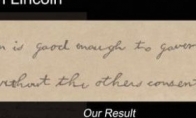 Lincoln
is good enough to
without the others consent
Our Result